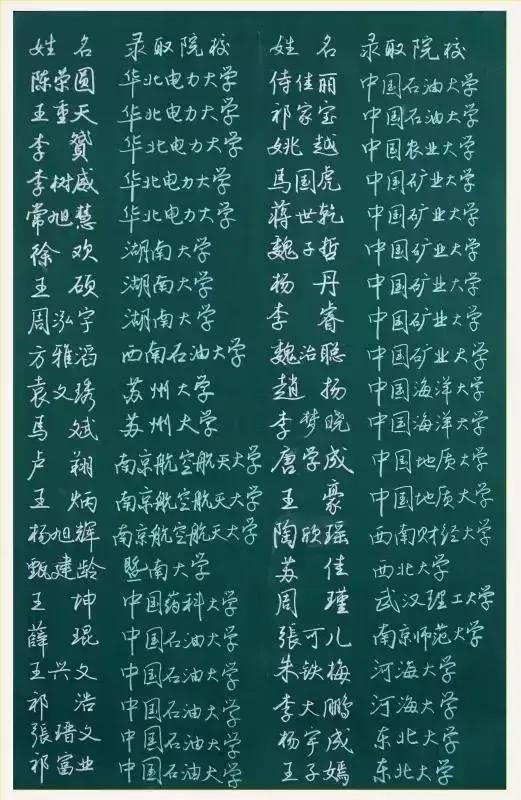 姓名 录取院校 姓名 录取院校
陈荣圆 华北电力大学 侍佳丽 中国石油大学
王重天 华北电力大学 祁家宝 中国石油大学
李赟 华北电力大学 姚越 中国农业大学
李树威 华北电力大学 马国虎 中国矿业大学
常旭慧 华北电力大学 蒋世乾 中国矿业大学
徐欢 湖南大学 魏子哲 中国矿业大学
王硕 湖南大学 杨丹 中国矿业大学
周泓宇 湖南大学 李睿 中国矿业大学
方雅滔 西南石油大学 魏治聪 中国矿业大学
袁文琇 苏州大学 趙扬 中国海洋大学
马斌 苏州大学 李梦晓 中国海洋大学
卢翔 南京航空航天大学 唐学成 中国地质大学
王炳 南京航空航天大学 王豪 中国地质大学
杨旭辉 南京航空航天大学 陶欣瑶 西南财经大学
甄建龄 暨南大学 苏佳 西北大学
王坤 中国药科大学 周瑾 武汉理工大学
薛琨 中国石油大学 張可儿 南京师范大学
王兴文 中国石油大学 朱铁梅 河海大学
祁浩 中国石油大学 李大鹏 河海大学
張瑨文 中国石油大学 杨宇成 东北大学
祁富业 中国石油大学 王子嫣 东北大学